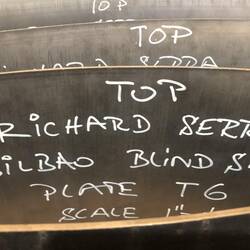 TOP
TOP
SERRA
TOP
RICHARD SERR
BILBAO BLIND S
PLATE T6
SCALE 1"